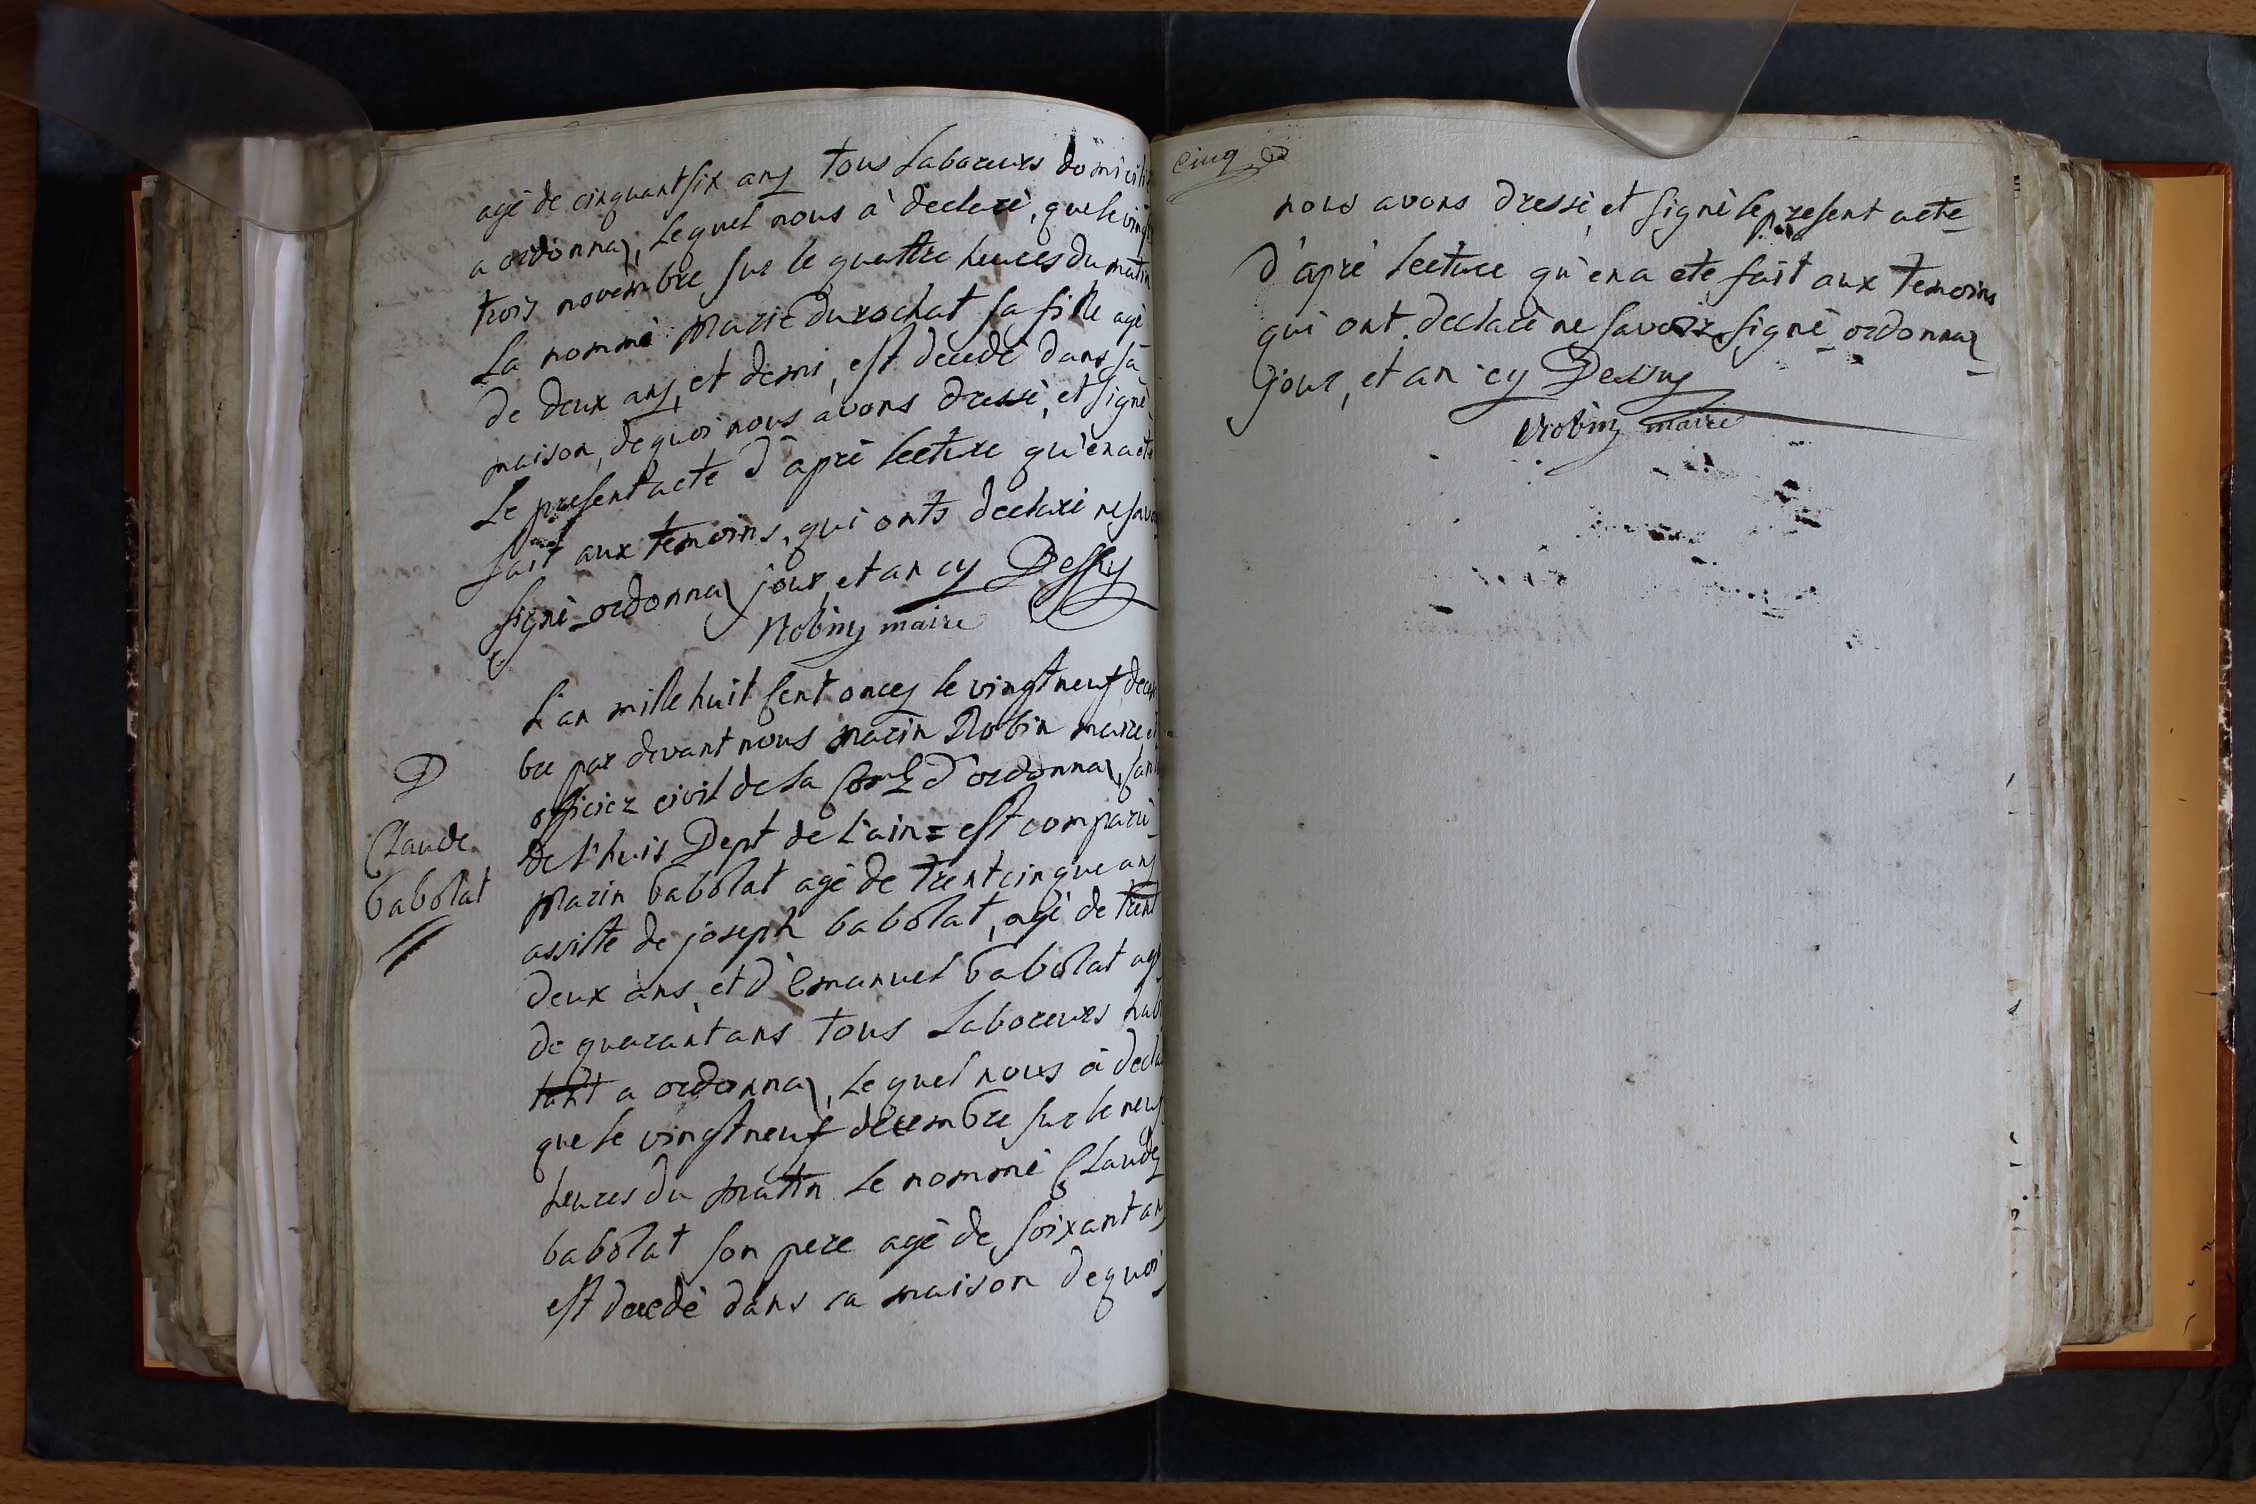 agé de cinquant six ans tous laboreurs domicilié
a ordonnaz, lequel nous à declaré, que le vingt
trois novembre sur le quattre heures du matin
La nommé Marie Durochat sa fille agé
de deux ans, et demi, est décédé dans sa
maison, de quoi nous avons dressé, et signé
Le present acte d'apré lecture qu'en a eté
fait aux temoins, qui onts declaré ne savoi
signé ordonnaz jour, et an cy Dessus
Robin maire
D
Claude
babolat
L'an mille huit sent onces le vingt neuf decem
bre par devant nous Marin Robin maire et
officier civil de la Com.e d'ordonnaz, can
de l'huis Dept de L'ain = est comparu
Marin babolat agé de trent cinque ans
assisté de joseph babolat, agé de trent
deux ans, et d'Emanuel babolat agé
de quarant ans tous Laboreurs habi
tant a ordonnaz, lequel nous à decla
que le vingt neuf décembre sur le neuf
heures du matin le nommé Claude
babolat son pere agé de soixant ans
est decedé dans sa maison de quoi
Cinq
nous avons dressé, et signé le present acte
d'apré lecture qu'en a eté fait aux temoins
qui ont declaré ne savoir signé ordonnaz
jour, et an cy Dessus
Robin maire